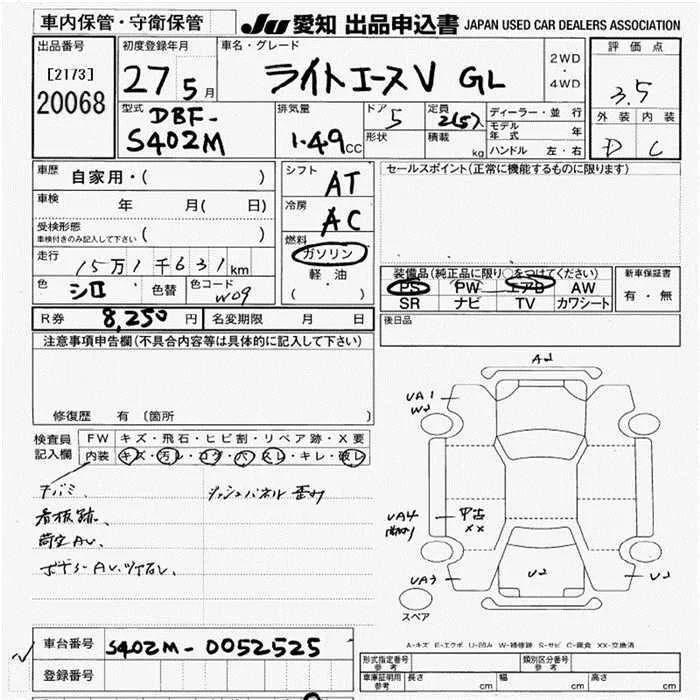 車内保管・守衛保管
JU 愛知 出品申込書 JAPAN USED CAR DEALERS ASSOCIATION
出品番号
[2173]
20068
初度登録年月
27 5月
車名・グレード
ライトエースV GL
2WD
・
4WD
評価点
3.5
外装 内装
D C
型式
DBF-
S402M
排気量
1.49cc
ドア 5
形状
定員 2(5)人
積載 kg
ディーラー・並行
モデル年式 年
ハンドル 左・右
車歴 自家用・( )
車検 年 月( 日)
受検形態
車検付きのみ記入して下さい ( )
走行 15万1千631km
色 シロ 色替 色コード W09
シフト AT
冷房 AC
燃料
ガソリン
軽・油
( )
セールスポイント(正常に機能するものに限ります)
装備品(純正品に限り○をつけてください)
PS PW エアB AW
SR ナビ TV カワシート
新車保証書
有・無
R券 8,250円 名変期限 月 日
後日品
注意事項申告欄(不具合内容等は具体的に記入して下さい)
修復歴 有〔箇所 〕
検査員
記入欄
FW キズ・飛石・ヒビ割・リペア跡・X要
内装 キズ・汚レ・コゲ・穴・スレ・キレ・破レ
チバミ、
看板跡、
荷室AU、
ダッシュパネル歪み
A2
UA1
W2
UA4
中古
XX
UA3
U2
U2
スペア
A-キズ E-エクボ U-凹み W-補修跡 S-サビ C-腐食 XX-交換済
車台番号 S402M-0052525
登録番号
形式指定番号
参考
類別区分番号
参考
車庫証明用
参考
長さ cm 幅 cm 高さ cm